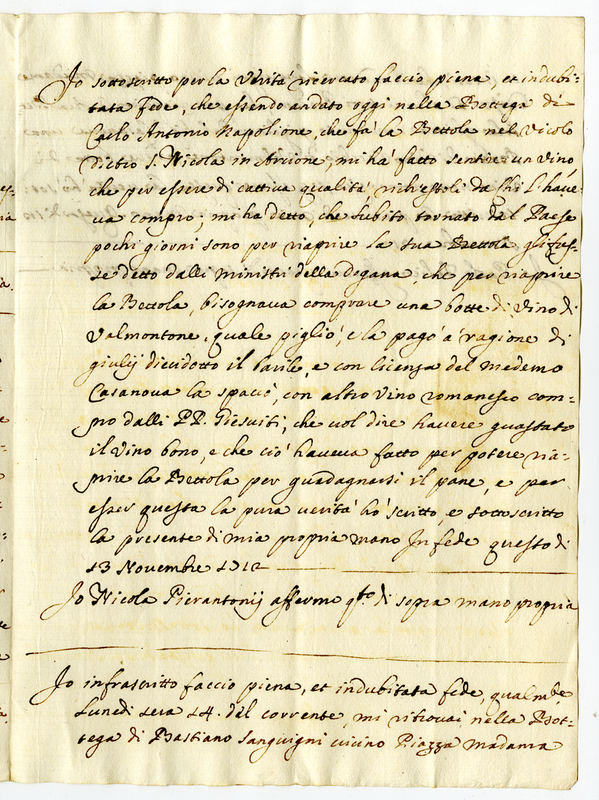 Jo sottoscritto per la verità ricercato faccio piena, et indubi-
tata fede, che essendo andato oggi nella Bottega di
Carlo Antonio Napolione, che fà la Bettola nel vicolo
dietro S. Nicola in Arcione, mi hà fatto sentire un vino
che per essere di cattiva qualità richiestoli da chi l'have-
va compro; mi ha detto, che subito tornato dal Paese
pochi giorni sono per riaprire la sua Bettola gli fus-
se detto dalli ministri della dogana, che per riaprire
la Bettola, bisognava comprare una botte di vino di
Valmontone, quale pigliò, e la pagò à ragione di
giulij diecidotto il barile, e con licenza del medemo
Casanova la spaciò, con altro vino romanesco com-
pro dalli PP. Giesuiti, che vol dire havere guastato
il vino bono, e che ciò haveva fatto per potere ria-
prire la Bettola per guadagnarsi il pane, e per
esser questa la pura verità hò scritto, e sottoscritto
la presente di mia propria mano In fede questo di
13 Novembre 1712
Jo Nicola Pierantonij affermo q.to di sopra mano propria
Jo infrascritto faccio piena, et indubitata fede, qualm.te
Lunedi sera 14. del corrente, mi ritrovai nella Bot-
tega di Bastiano Sanguigni vicino Piazza Madama